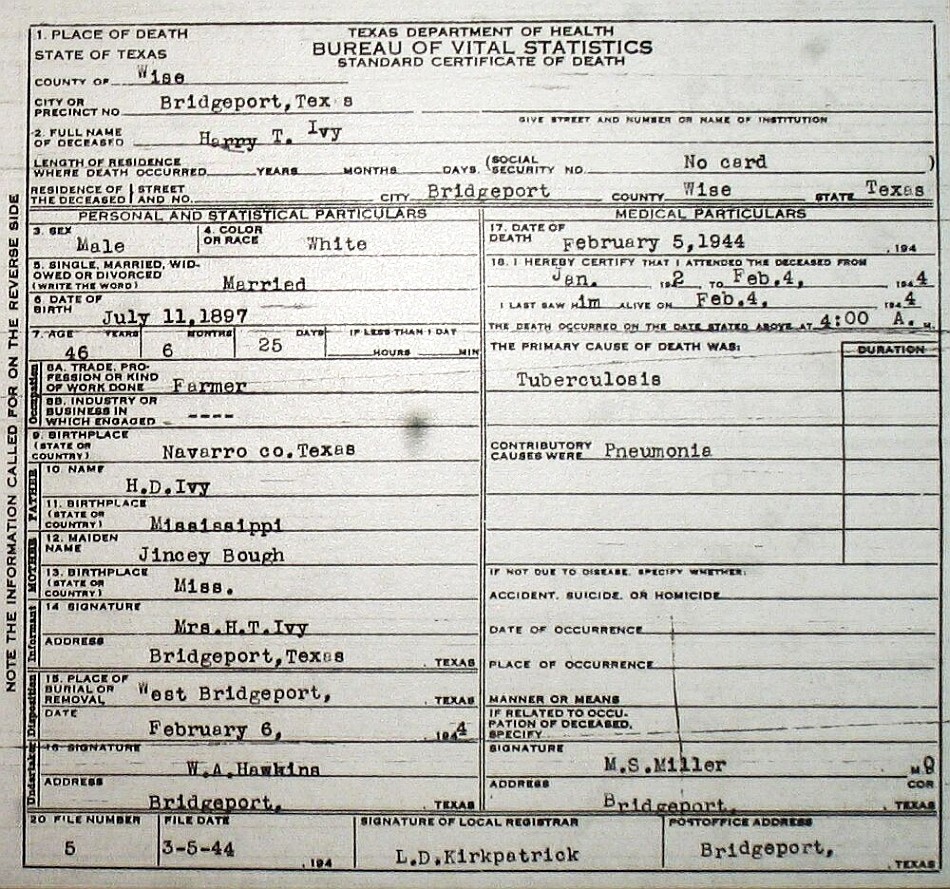 NOTE THE INFORMATION CALLED FOR ON THE REVERSE SIDE
TEXAS DEPARTMENT OF HEALTH
BUREAU OF VITAL STATISTICS
STANDARD CERTIFICATE OF DEATH
1. PLACE OF DEATH
STATE OF TEXAS
COUNTY OF Wise
CITY OR PRECINCT NO. Bridgeport,Tex s
GIVE STREET AND NUMBER OR NAME OF INSTITUTION
2. FULL NAME OF DECEASED Harry T. Ivy
LENGTH OF RESIDENCE WHERE DEATH OCCURRED YEARS MONTHS DAYS (SOCIAL SECURITY NO. No card )
RESIDENCE OF THE DECEASED STREET AND NO. CITY Bridgeport COUNTY Wise STATE Texas
PERSONAL AND STATISTICAL PARTICULARS
3. SEX Male 4. COLOR OR RACE White
5. SINGLE, MARRIED, WIDOWED OR DIVORCED (WRITE THE WORD) Married
6. DATE OF BIRTH July 11,1897
7. AGE YEARS MONTHS DAYS IF LESS THAN 1 DAY
46 6 25 HOURS MIN
Occupation
8A. TRADE, PROFESSION OR KIND OF WORK DONE Farmer
8B. INDUSTRY OR BUSINESS IN WHICH ENGAGED ----
9. BIRTHPLACE (STATE OR COUNTRY) Navarro co.Texas
FATHER
10. NAME H.D.Ivy
11. BIRTHPLACE (STATE OR COUNTRY) Mississippi
MOTHER
12. MAIDEN NAME Jincey Bough
13. BIRTHPLACE (STATE OR COUNTRY) Miss.
Informant
14 SIGNATURE Mrs.H.T.Ivy
ADDRESS Bridgeport,Texas , TEXAS
Disposition
15. PLACE OF BURIAL OR REMOVAL West Bridgeport, TEXAS
DATE February 6, 1944
Undertaker
16 SIGNATURE W.A.Hawkins
ADDRESS Bridgeport, , TEXAS
MEDICAL PARTICULARS
17. DATE OF DEATH February 5,1944 , 194
18. I HEREBY CERTIFY THAT I ATTENDED THE DECEASED FROM
Jan. 192 TO Feb.4, 1944
I LAST SAW Him ALIVE ON Feb.4, 1944
THE DEATH OCCURRED ON THE DATE STATED ABOVE AT 4:00 A. M.
THE PRIMARY CAUSE OF DEATH WAS: DURATION
Tuberculosis
CONTRIBUTORY CAUSES WERE Pneumonia
IF NOT DUE TO DISEASE, SPECIFY WHETHER:
ACCIDENT, SUICIDE, OR HOMICIDE
DATE OF OCCURRENCE
PLACE OF OCCURRENCE
MANNER OR MEANS
IF RELATED TO OCCUPATION OF DECEASED, SPECIFY
SIGNATURE M.S.Miller M.D
COR
ADDRESS Bridgeport, , TEXAS
20 FILE NUMBER FILE DATE SIGNATURE OF LOCAL REGISTRAR POSTOFFICE ADDRESS
5 3-5-44 , 194 L.D.Kirkpatrick Bridgeport, , TEXAS